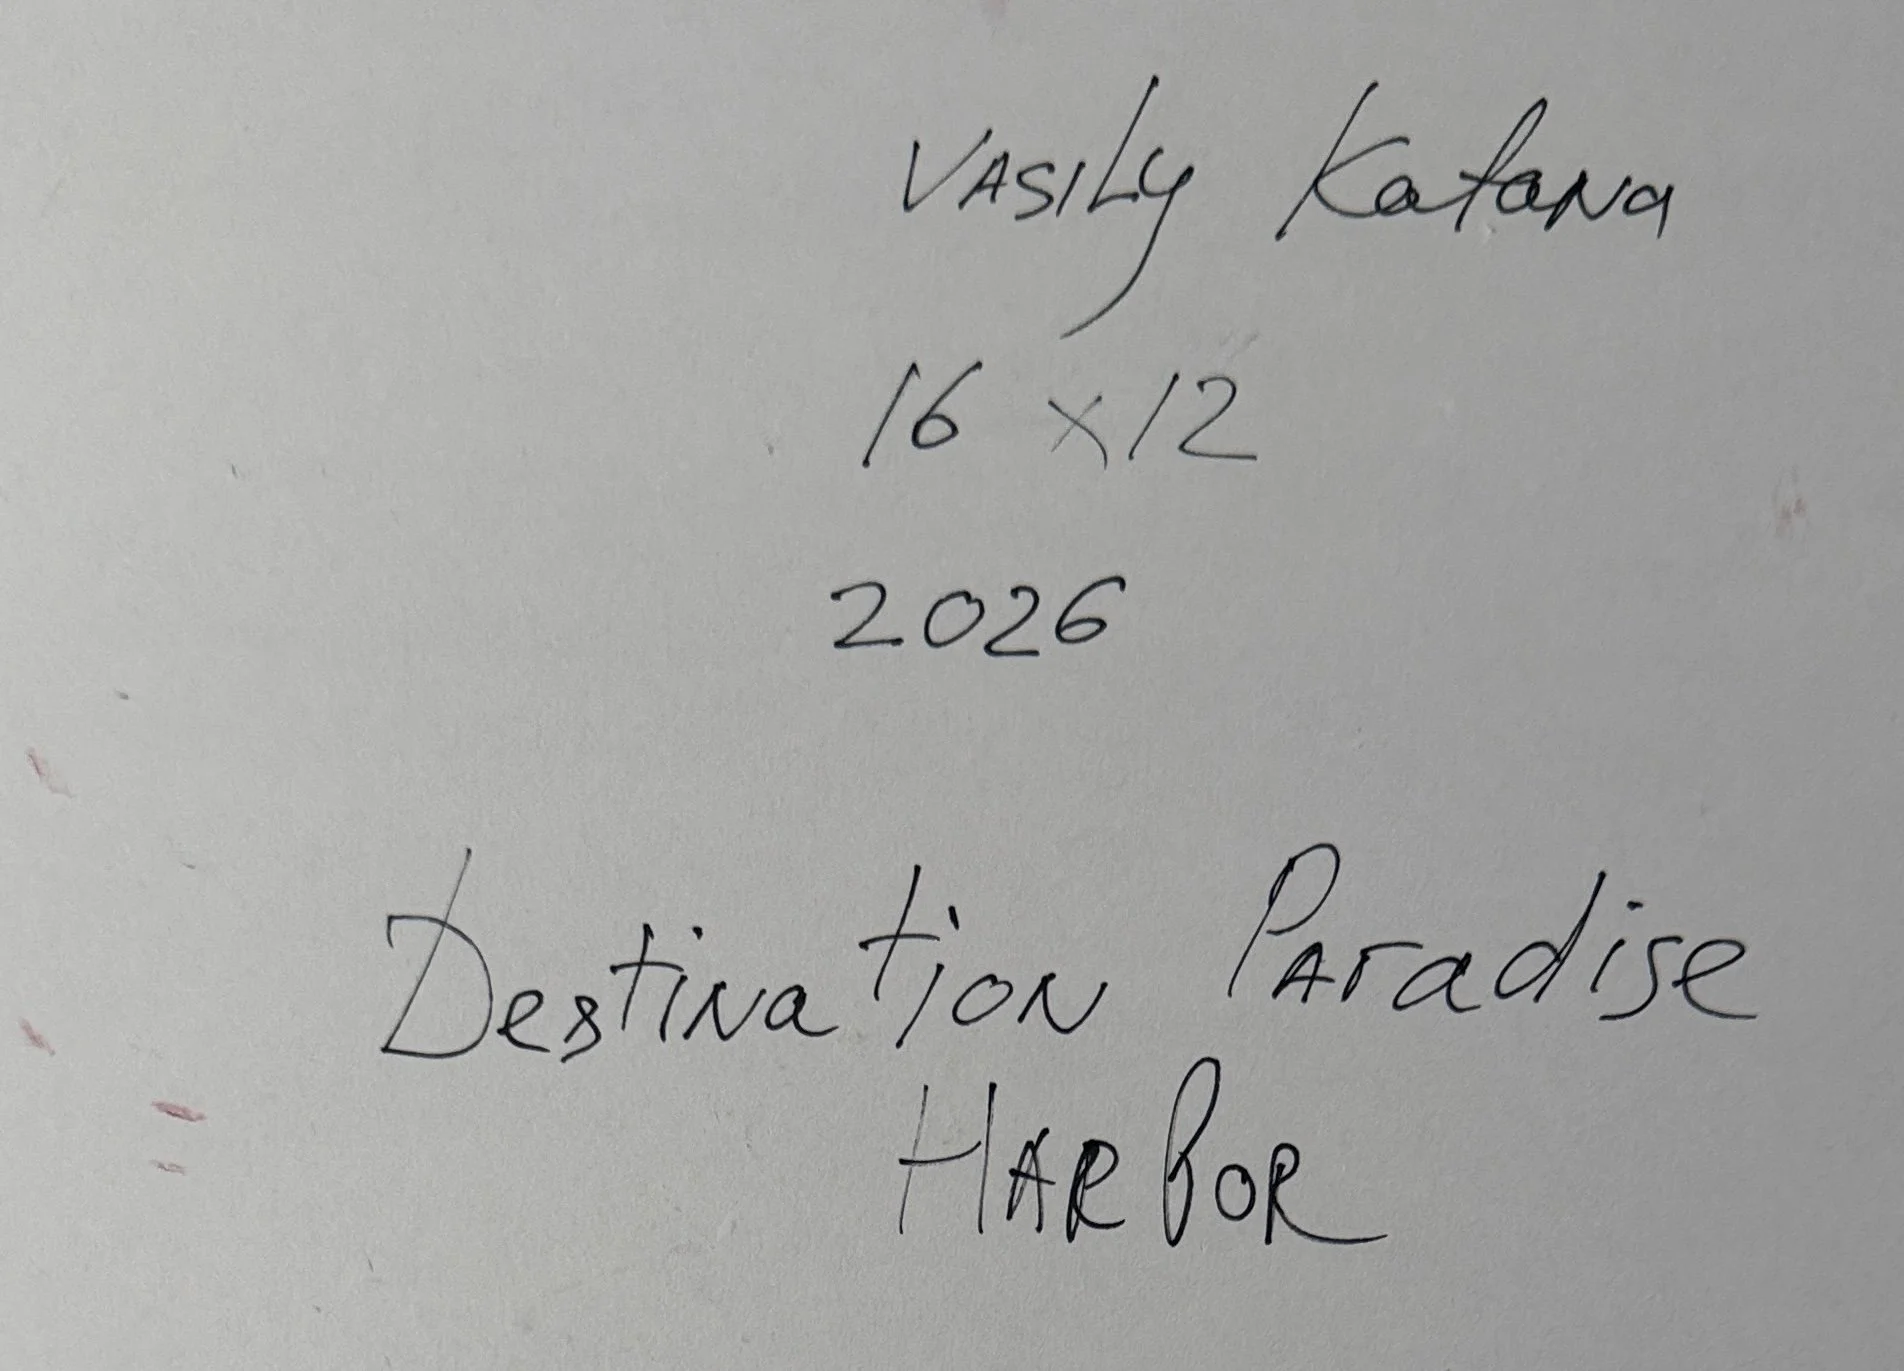 VASILy Katana
16 x 12
2026
Destination Paradise
HARBOR